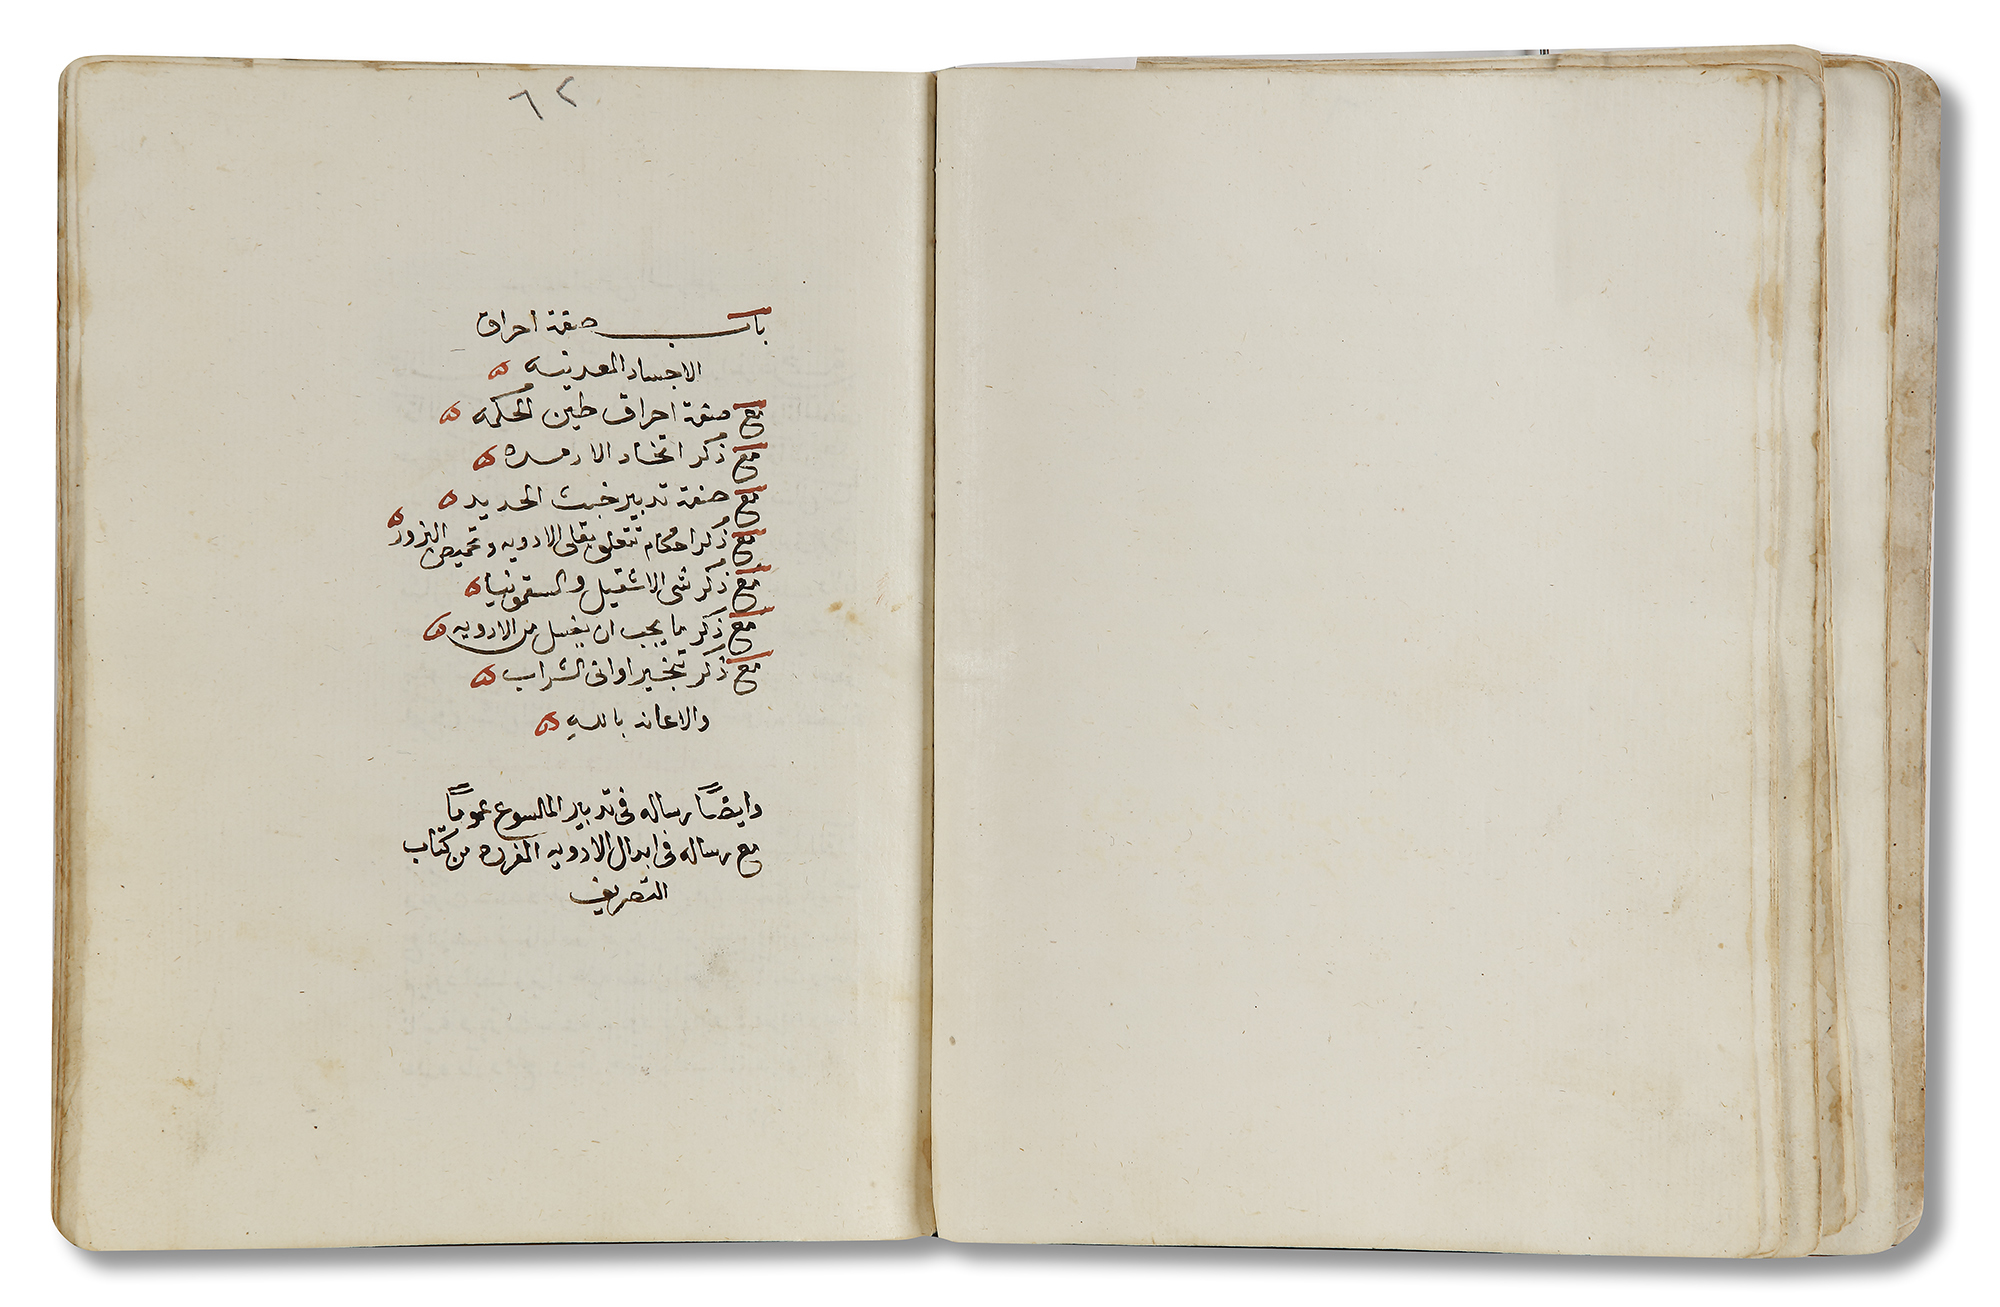 ٦٢
باب صفة احراق
الاجساد المعدنيه ه
مع صفة احراق طين الحكمه ه
مع ذكر اتخاد الارمده ه
مع صفة تدبير خبث الحديد ه
مع ذكر احكام تتعلق بقلى الادويه وتحميص البزور ه
مع ذكر شى الاشقيل والسقمونيا ه
مع ذكر ما يجب ان يغسل من الادويه ه
مع ذكر تبخير اوانى الشراب ه
والاعانه بالله ه
وايضاً رساله فى تدبير الملسوع عموماً
مع رساله فى ابدال الادويه المفرده من كتاب
التصريف